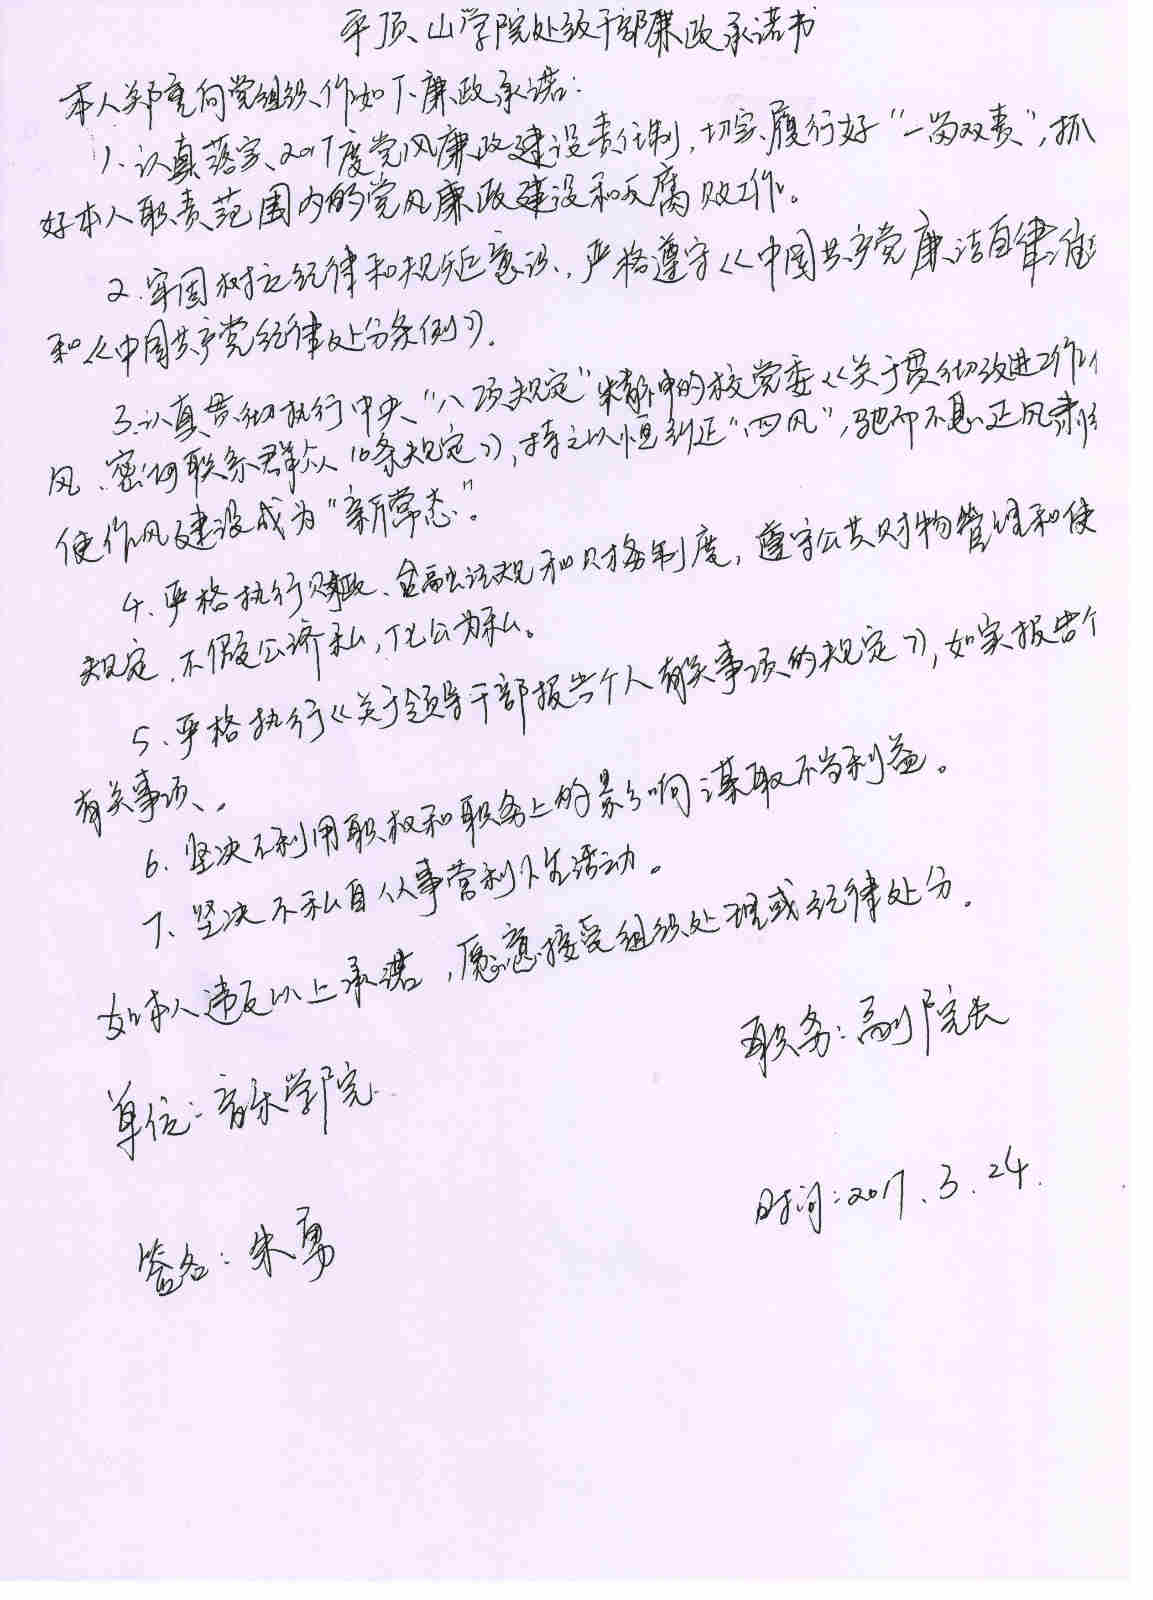 平顶山学院处级干部廉政承诺书
本人郑重向党组织作如下廉政承诺：
1、认真落实2017度党风廉政建设责任制，切实履行好“一岗双责”，抓
好本人职责范围内的党风廉政建设和反腐败工作。
2、牢固树立纪律和规矩意识，严格遵守《中国共产党廉洁自律准
和《中国共产党纪律处分条例》。
3、认真贯彻执行中央“八项规定”精神的校党委《关于贯彻改进工作作
风、密切联系群众10条规定》，持之以恒纠正“四风”，驰而不息正风肃纪
使作风建设成为“新常态”。
4、严格执行财政、金融法规和财务制度，遵守公共财物管理和使
规定，不假公济私，化公为私。
5、严格执行《关于领导干部报告个人有关事项的规定》，如实报告个
有关事项。
6、坚决不利用职权和职务上的影响谋取不当利益。
7、坚决不私自从事营利性活动。
如本人违反以上承诺，愿意接受组织处理或纪律处分。
职务：副院长
单位：音乐学院
时间：2017.3.24.
签名：朱勇